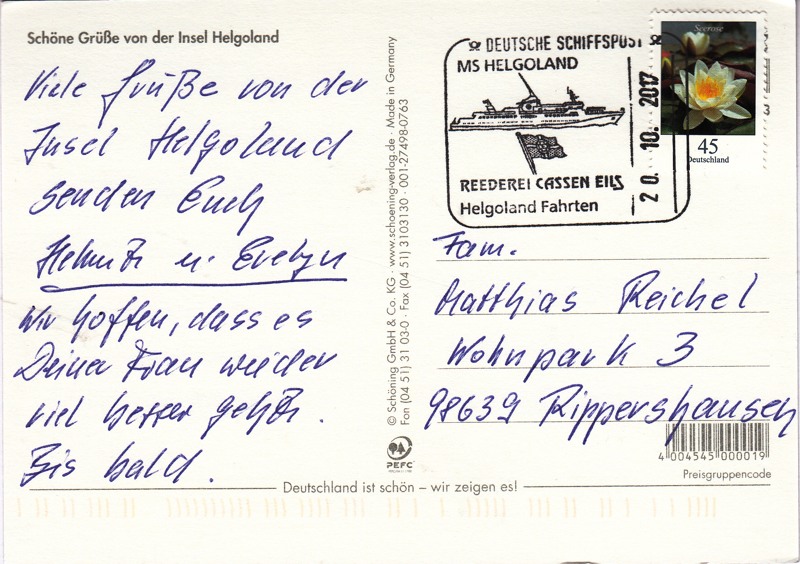 Schöne Grüße von der Insel Helgoland
Viele Grüße von der
Insel Helgoland
senden Euch
Helmuth u. Evelyn
Wir hoffen, dass es
Deiner Frau wieder
viel besser geht.
Bis bald.
© Schöning GmbH & Co. KG · www.schoening-verlag.de · Made in Germany
Fon (04 51) 31 03-0 · Fax (04 51) 3103130 · 001-27498-0763
PEFC
DEUTSCHE SCHIFFSPOST
MS HELGOLAND
REEDEREI CASSEN EILS
Helgoland Fahrten
20. 10. 2017
Seerose
45
Deutschland
Fam.
Matthias Reichel
Wohnpark 3
98639 Rippershausen
4 004545 000019
Preisgruppencode
Deutschland ist schön – wir zeigen es!